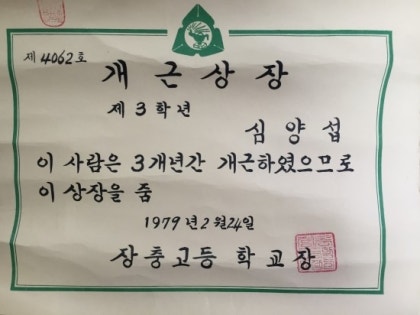 제 4062 호
개 근 상 장
제 3 학년
심 양 섭
이 사람은 3개년간 개근하였으므로
이 상장을 줌
1979 년 2 월 24일
장충고등 학교장